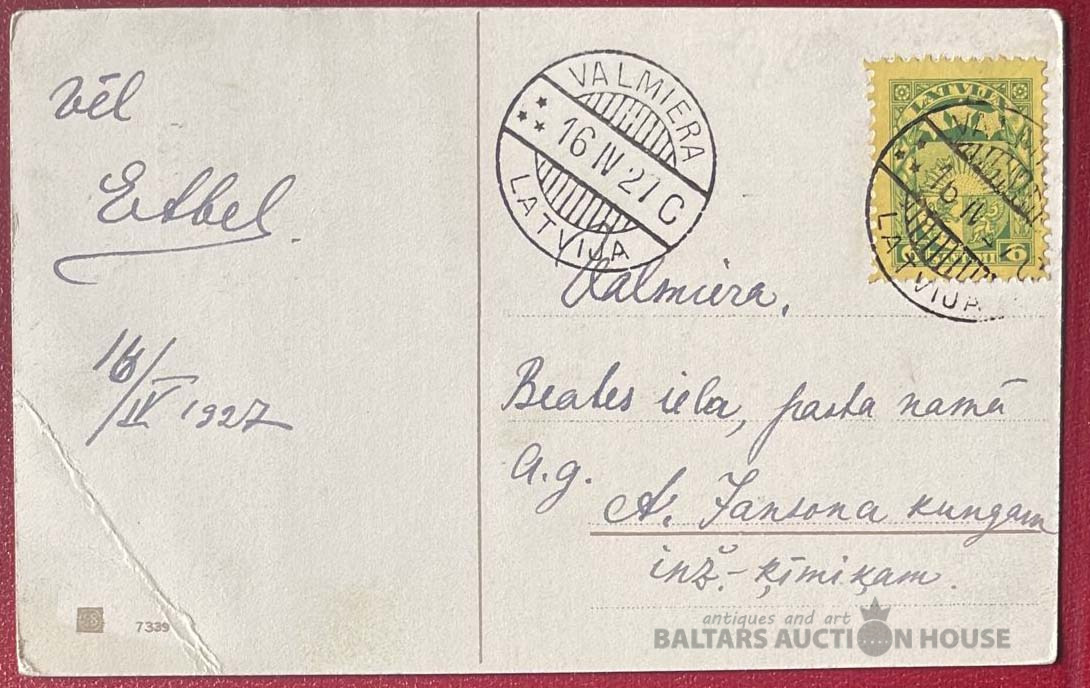 vēl
Ethel.
16/IV 1927
7339
VALMIERA
16 IV 27 C
LATVIJA
LATVIJA
6 6
16 IV
LATVIJA
Valmiera,
Beates ielа, pasta namā
A. g.
A. Jansona kungam
inž.-ķīmiķam.
antiques and art
BALTARS AUCTION HOUSE